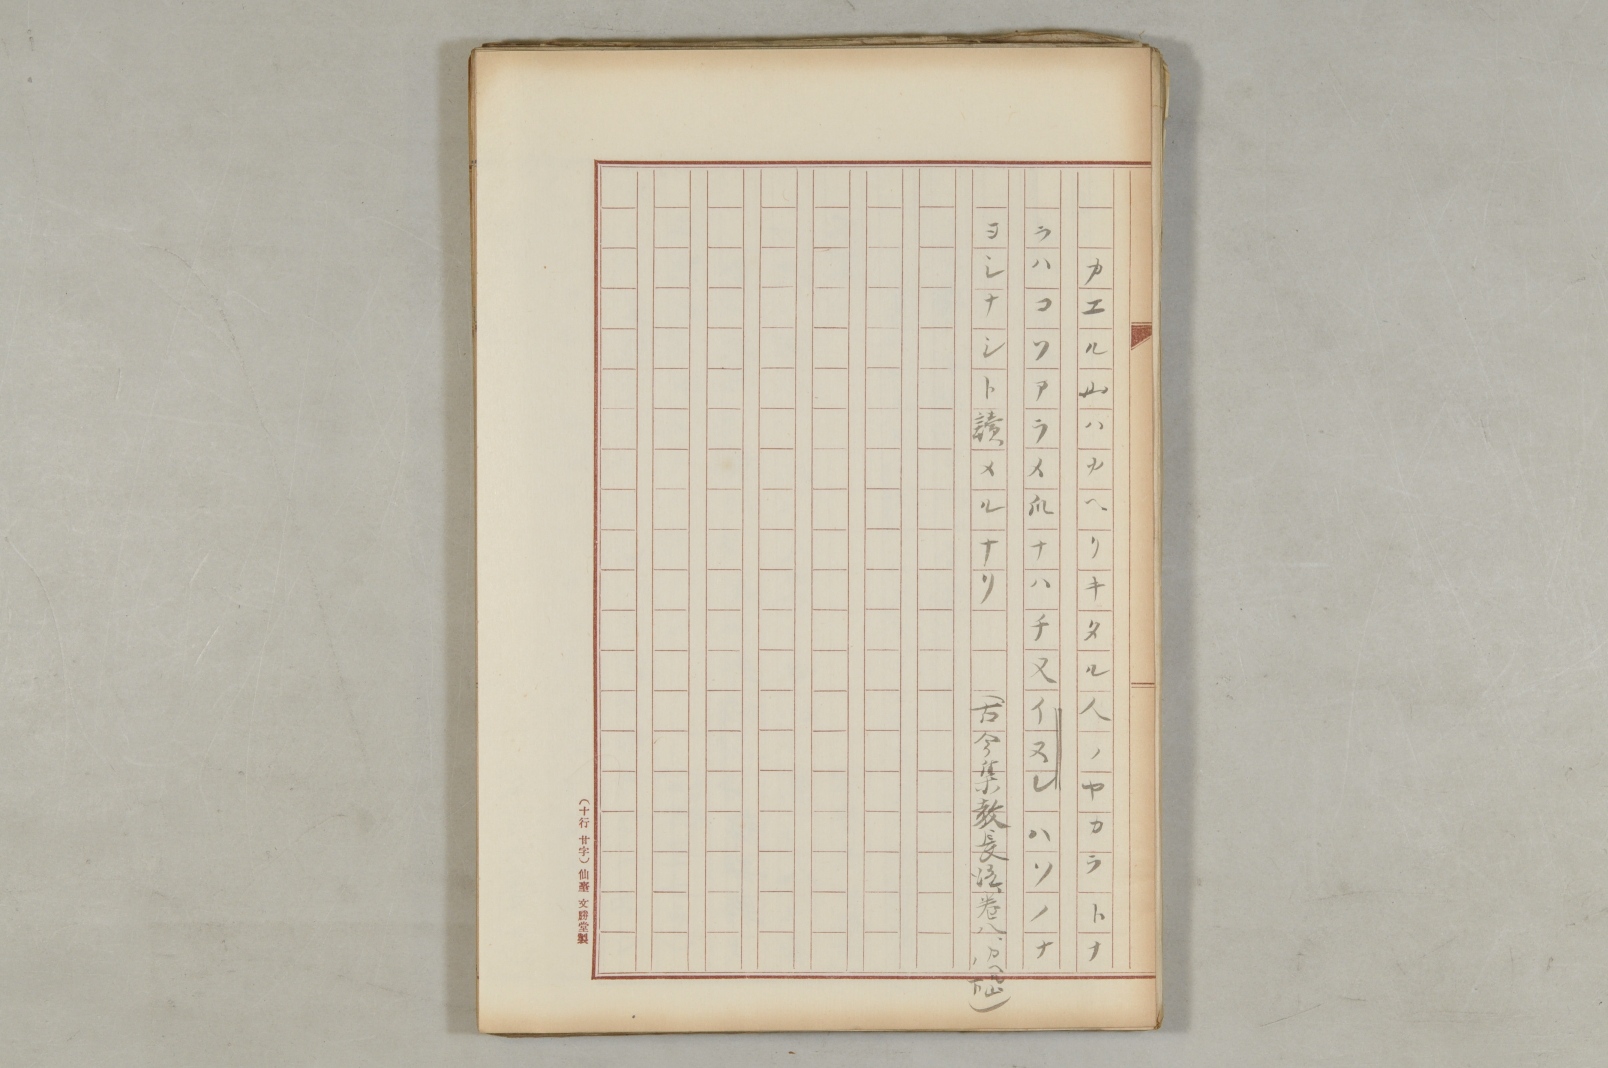 カエル山ハカヘリキタル人ノヤカラトナ
ラハコソアラメ爪ナハチ又イヌレハソノナ
ヨシナシト讀メルナリ
(古今集教長注巻八
(十行廿字)仙臺文勝堂製